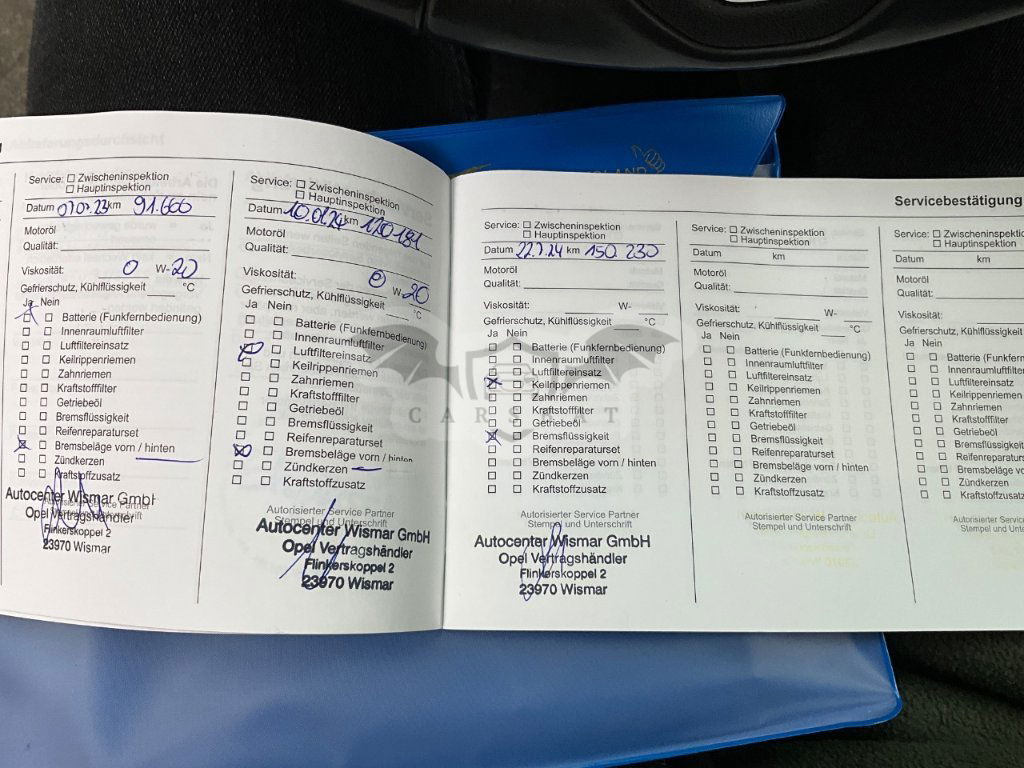 Ablieferungsdurchsicht
Service: Zwischeninspektion
Hauptinspektion
Datum 07.07.23 km 91.666
Motoröl
Qualität:
Viskosität: 0 W-20
Gefrierschutz, Kühlflüssigkeit °C
Ja Nein
Batterie (Funkfernbedienung)
Innenraumluftfilter
Luftfiltereinsatz
Keilrippenriemen
Zahnriemen
Kraftstofffilter
Getriebeöl
Bremsflüssigkeit
Reifenreparaturset
Bremsbeläge vorn / hinten
Zündkerzen
Kraftstoffzusatz
Autorisierter Service Partner
Stempel und Unterschrift
Autocenter Wismar GmbH
Opel Vertragshändler
Flinkerskoppel 2
23970 Wismar
Service: Zwischeninspektion
Hauptinspektion
Datum 10.01.24 km 120.181
Motoröl
Qualität:
Viskosität: 0 W-20
Gefrierschutz, Kühlflüssigkeit °C
Ja Nein
Batterie (Funkfernbedienung)
Innenraumluftfilter
Luftfiltereinsatz
Keilrippenriemen
Zahnriemen
Kraftstofffilter
Getriebeöl
Bremsflüssigkeit
Reifenreparaturset
Bremsbeläge vorn / hinten
Zündkerzen
Kraftstoffzusatz
Autorisierter Service Partner
Stempel und Unterschrift
Autocenter Wismar GmbH
Opel Vertragshändler
Flinkerskoppel 2
23970 Wismar
Servicebestätigung
Service: Zwischeninspektion
Hauptinspektion
Datum 22.7.24 km 150.230
Motoröl
Qualität:
Viskosität: W-
Gefrierschutz, Kühlflüssigkeit °C
Ja Nein
Batterie (Funkfernbedienung)
Innenraumluftfilter
Luftfiltereinsatz
Keilrippenriemen
Zahnriemen
Kraftstofffilter
Getriebeöl
Bremsflüssigkeit
Reifenreparaturset
Bremsbeläge vorn / hinten
Zündkerzen
Kraftstoffzusatz
Autorisierter Service Partner
Stempel und Unterschrift
Autocenter Wismar GmbH
Opel Vertragshändler
Flinkerskoppel 2
23970 Wismar
Service: Zwischeninspektion
Hauptinspektion
Datum km
Motoröl
Qualität:
Viskosität: W-
Gefrierschutz, Kühlflüssigkeit °C
Ja Nein
Batterie (Funkfernbedienung)
Innenraumluftfilter
Luftfiltereinsatz
Keilrippenriemen
Zahnriemen
Kraftstofffilter
Getriebeöl
Bremsflüssigkeit
Reifenreparaturset
Bremsbeläge vorn / hinten
Zündkerzen
Kraftstoffzusatz
Autorisierter Service Partner
Stempel und Unterschrift
Service: Zwischeninspektion
Hauptinspektion
Datum km
Motoröl
Qualität:
Viskosität:
Gefrierschutz, Kühlflüssigkeit
Ja Nein
Batterie (Funkfern
Innenraumluftfilter
Luftfiltereinsatz
Keilrippenriemen
Zahnriemen
Kraftstofffilter
Getriebeöl
Bremsflüssigkeit
Reifenreparaturset
Bremsbeläge vorn /
Zündkerzen
Kraftstoffzusatz
Autorisierter Service
Stempel und Untersch